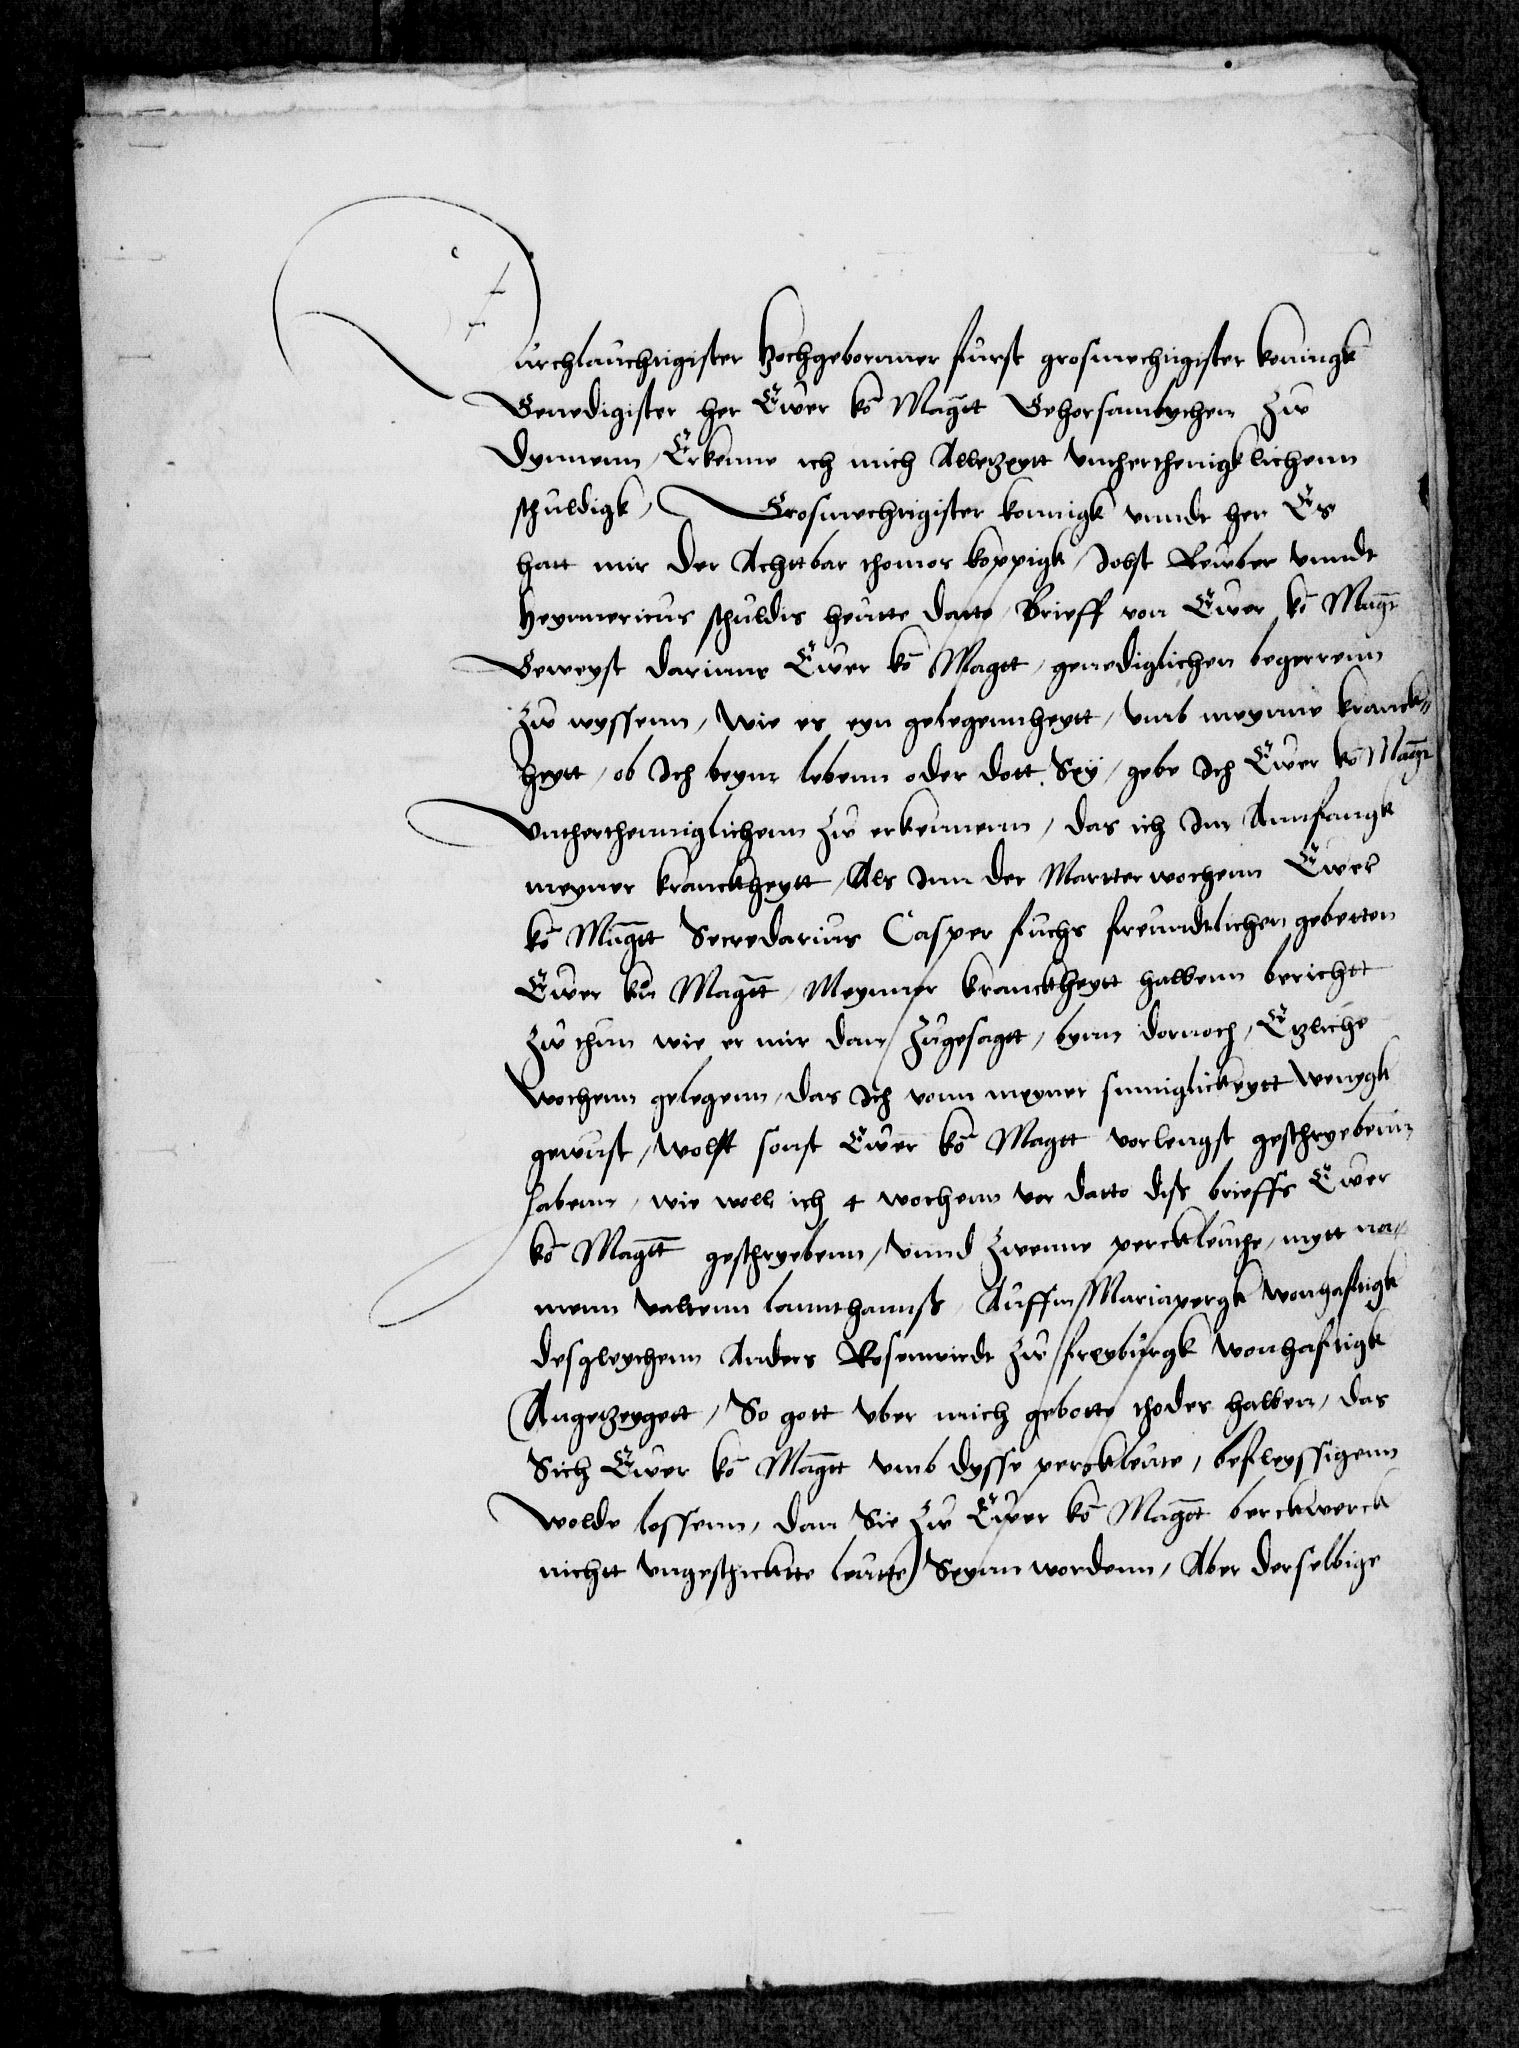 Durchlauchtigister Hochgebornner furst grosmechtigister konnigk
Genedigister her Ewer ko Magtt Gehorsamlychen Zw
dynnenn / Erkenne ich mich Alletzeytt vntherthenigklichenn
schuldigk / Grosmechtigister konnigk vnndt her Es
hatt mir der Achttbar thomos koppigk / Jobst Rewber vnndt
Heynnericus schuldis heutte datto / Brieff von Ewer ko Magtt
Geweyst darinne Ewer ko Magtt / genediglichen begerrenn
Zw wyssenn / Wie es eyn gelegennheytt / vmb meynne kranck=
heytt / ob Ich beym lebenn oder dott Sey / gebe Ich Ewer ko Magtt
vntherthenniglichenn Zw erkennenn / das ich Im Annfangk
meyner kranckheytt / Als Inn der Martterwochenn Ewer
ko Magtt Secredarius Casper fuchs freundtlichen gebetten
Ewer kon Magtt / Meynner kranckheytt halbenn berichtt
Zw thun wie er mir dan Zugesagtt / bynn dornoch / Etzliche
Wochenn gelegenn / das Ich vonn meyner sinniglickeytt Wenygk
gewust / Wolt sonst Ewer ko Magtt vorlengst geschryebenn
habenn / wie woll ich 4 wochenn vor datto diß brieffs Ewer
ko Magtt geschryebenn / vnnd Zwenne perckleuthe / mytt na=
menn Valtenn lannthannß / Auffm Mariapergk Wonhafftigk
desgleychenn Anders Rosenwirdt Zw freyburgk wonhafftigk
(Angetzeygett / So gott vber mich gebotte thodes halben / das
Sich Ewer ko Magtt vmb dysse perckleute / befleyssigenn
Wolde lossenn / dan Sie Zw Ewer ko Magtt berckwerck
nichtt vngeschickte leutte) Seynn wordenn / Aber derselbige